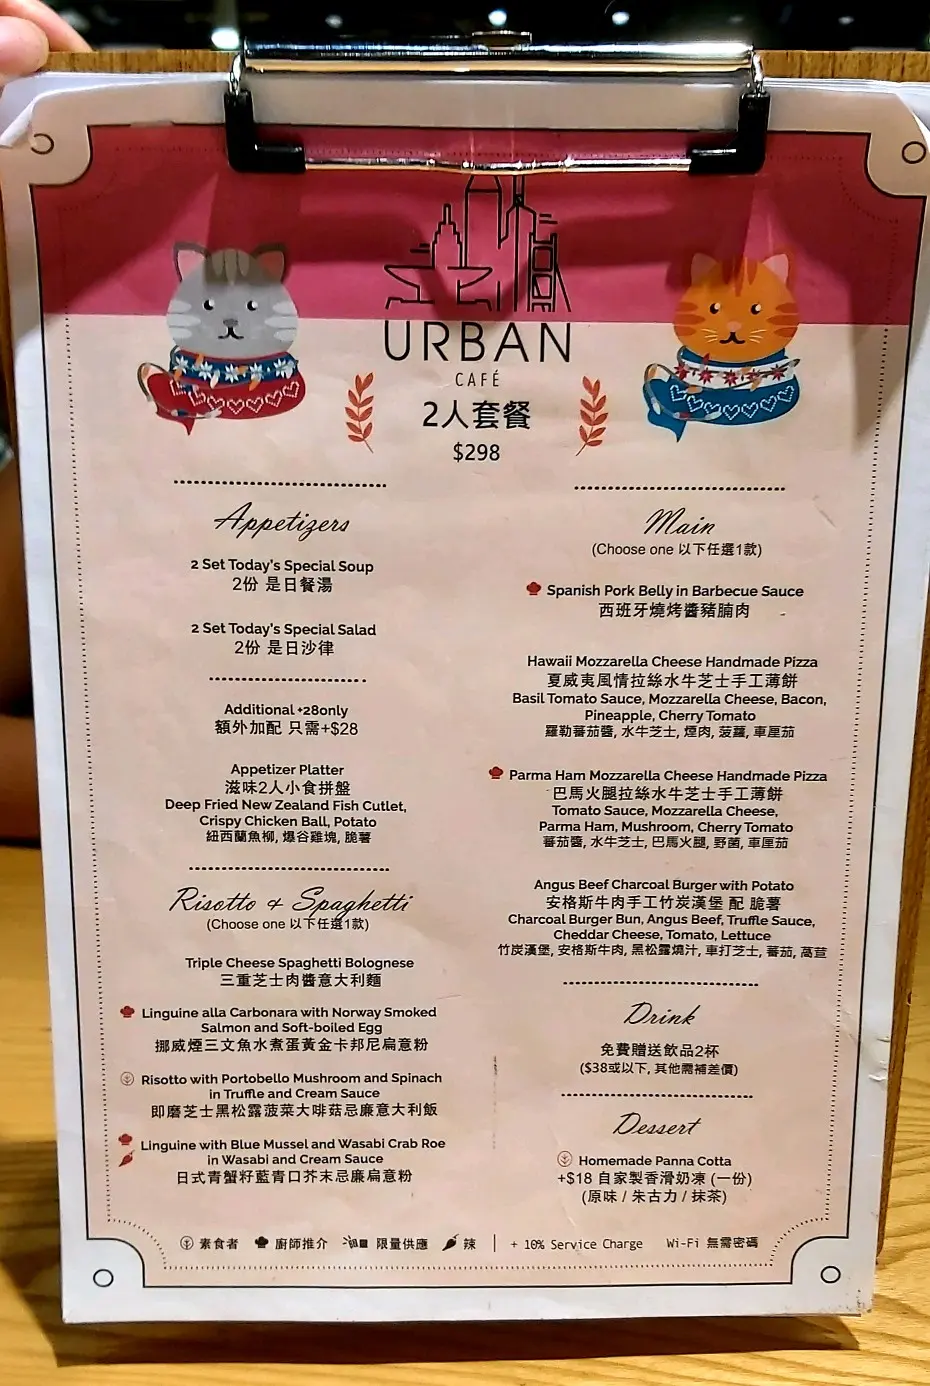 URBAN
CAFÉ
2人套餐
$298
Appetizers
2 Set Today's Special Soup
2份 是日餐湯
2 Set Today's Special Salad
2份 是日沙律
Additional +28only
額外加配 只需+$28
Appetizer Platter
滋味2人小食拼盤
Deep Fried New Zealand Fish Cutlet,
Crispy Chicken Ball, Potato
紐西蘭魚柳, 爆谷雞塊, 脆薯
Risotto & Spaghetti
(Choose one 以下任選1款)
Triple Cheese Spaghetti Bolognese
三重芝士肉醬意大利麵
Linguine alla Carbonara with Norway Smoked
Salmon and Soft-boiled Egg
挪威煙三文魚水煮蛋黃金卡邦尼扁意粉
Risotto with Portobello Mushroom and Spinach
in Truffle and Cream Sauce
即磨芝士黑松露菠菜大啡菇忌廉意大利飯
Linguine with Blue Mussel and Wasabi Crab Roe
in Wasabi and Cream Sauce
日式青蟹籽藍青口芥末忌廉扁意粉
Main
(Choose one 以下任選1款)
Spanish Pork Belly in Barbecue Sauce
西班牙燒烤醬豬腩肉
Hawaii Mozzarella Cheese Handmade Pizza
夏威夷風情拉絲水牛芝士手工薄餅
Basil Tomato Sauce, Mozzarella Cheese, Bacon,
Pineapple, Cherry Tomato
羅勒蕃茄醬, 水牛芝士, 煙肉, 菠蘿, 車厘茄
Parma Ham Mozzarella Cheese Handmade Pizza
巴馬火腿拉絲水牛芝士手工薄餅
Tomato Sauce, Mozzarella Cheese,
Parma Ham, Mushroom, Cherry Tomato
蕃茄醬, 水牛芝士, 巴馬火腿, 野菌, 車厘茄
Angus Beef Charcoal Burger with Potato
安格斯牛肉手工竹炭漢堡 配 脆薯
Charcoal Burger Bun, Angus Beef, Truffle Sauce,
Cheddar Cheese, Tomato, Lettuce
竹炭漢堡, 安格斯牛肉, 黑松露燒汁, 車打芝士, 蕃茄, 萵苣
Drink
免費贈送飲品2杯
($38或以下, 其他需補差價)
Dessert
Homemade Panna Cotta
+$18 自家製香滑奶凍 (一份)
(原味 / 朱古力 / 抹茶)
素食者 廚師推介 限量供應 辣 | + 10% Service Charge Wi-Fi 無需密碼